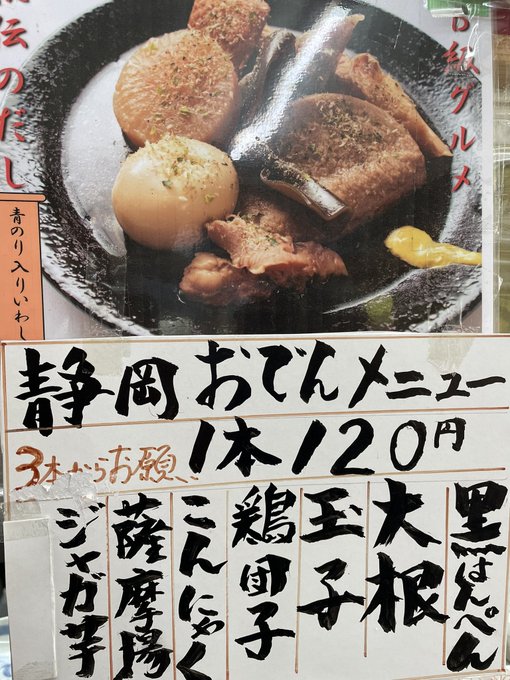 B級グルメ
伝のだし
青のり入りいわし
静岡おでんメニュー
3本からお願
1本120円
黒はんぺん
大根
玉子
鶏団子
こんにゃく
薩摩揚
ジャガ芋